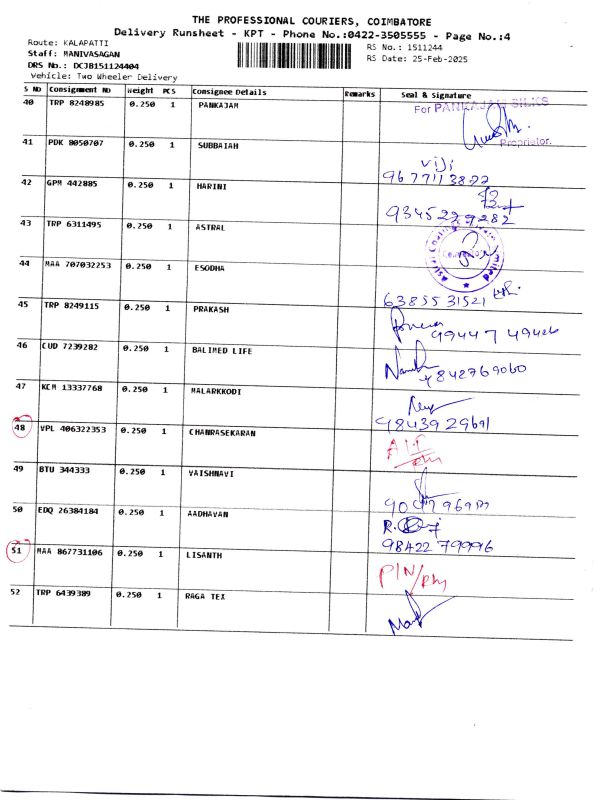 THE PROFESSIONAL COURIERS, COIMBATORE
Delivery Runsheet - KPT - Phone No.:0422-3505555 - Page No.:4
Route: KALAPATTI
RS No.: 1511244
Staff: MANIVASAGAN
RS Date: 25-Feb-2025
DRS No.: DCJB151124404
Vehicle: Two Wheeler Delivery
S No Consignment No Weight PCS Consignee Details Remarks Seal & Signature
40 TRP 8248985 0.250 1 PANKAJAM For PANKAJAM SILKS
Proprietor.
41 PDK 8050707 0.250 1 SUBBAIAH Viji
9677113872
42 GPM 442885 0.250 1 HARINI
9345229282
43 TRP 6311495 0.250 1 ASTRAL
44 MAA 707032253 0.250 1 ESODHA
6385531521
45 TRP 8249115 0.250 1 PRAKASH
99447 49426
46 CUD 7239282 0.250 1 BALIMED LIFE
9842769060
47 KCM 13337768 0.250 1 MALARKKODI
9843929691
48 VPL 406322353 0.250 1 CHANRASEKARAN
49 BTU 344333 0.250 1 VAISHNAVI
50 EDQ 26384184 0.250 1 AADHAVAN
98422 79996
51 MAA 867731106 0.250 1 LISANTH
P/N
52 TRP 6439389 0.250 1 RAGA TEX